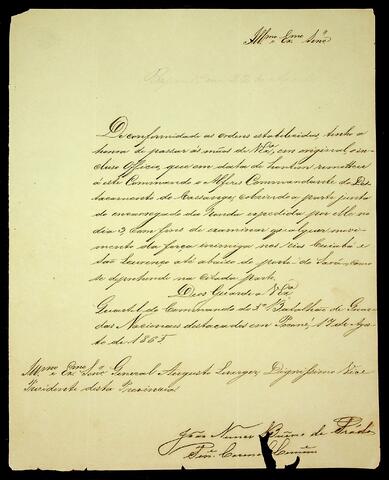 Illmo e Exmo Senr
De conformidade as ordens estabelecidas, tenho a
honra de passar ás mãos de VExa, em original o in-
cluso Officio, que em data de hontem remetteu
á este Commando o Alferes Commandante do Des-
tacamento de Sassange, cobrindo a parte junta
do encarregado da Ronda expedida por elle no
dia 3, com fins de examinar qualquer movi-
mento da força inimiga nos rios Cuiabá e
São Lourenço até abaixo do porto do Sará, como
se deprehende na citada parte.
Deos Guarde a VExa
Quartel do Commando do 5o Batalhão de Guar-
das Nacionais destacados em Poconé, 17 de Agos-
to de 1865
Illmo e Exmo Senr General Augusto Leverger, Dignissimo Vice
Presidente desta Provincia
João Nunes Bueno do Prado
Ten. Coronel Commte